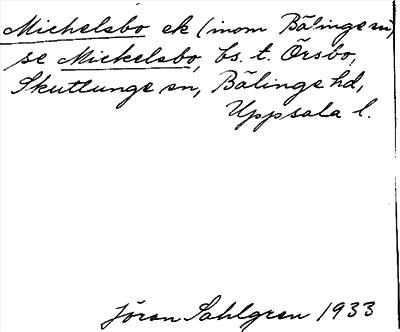 Michelsbo ek (inom Bälinge sn)
se Mickelsbo, bs. t. Örsbo,
Skuttunge sn, Bälinge hd,
Uppsala l.
Jöran Sahlgren 1933